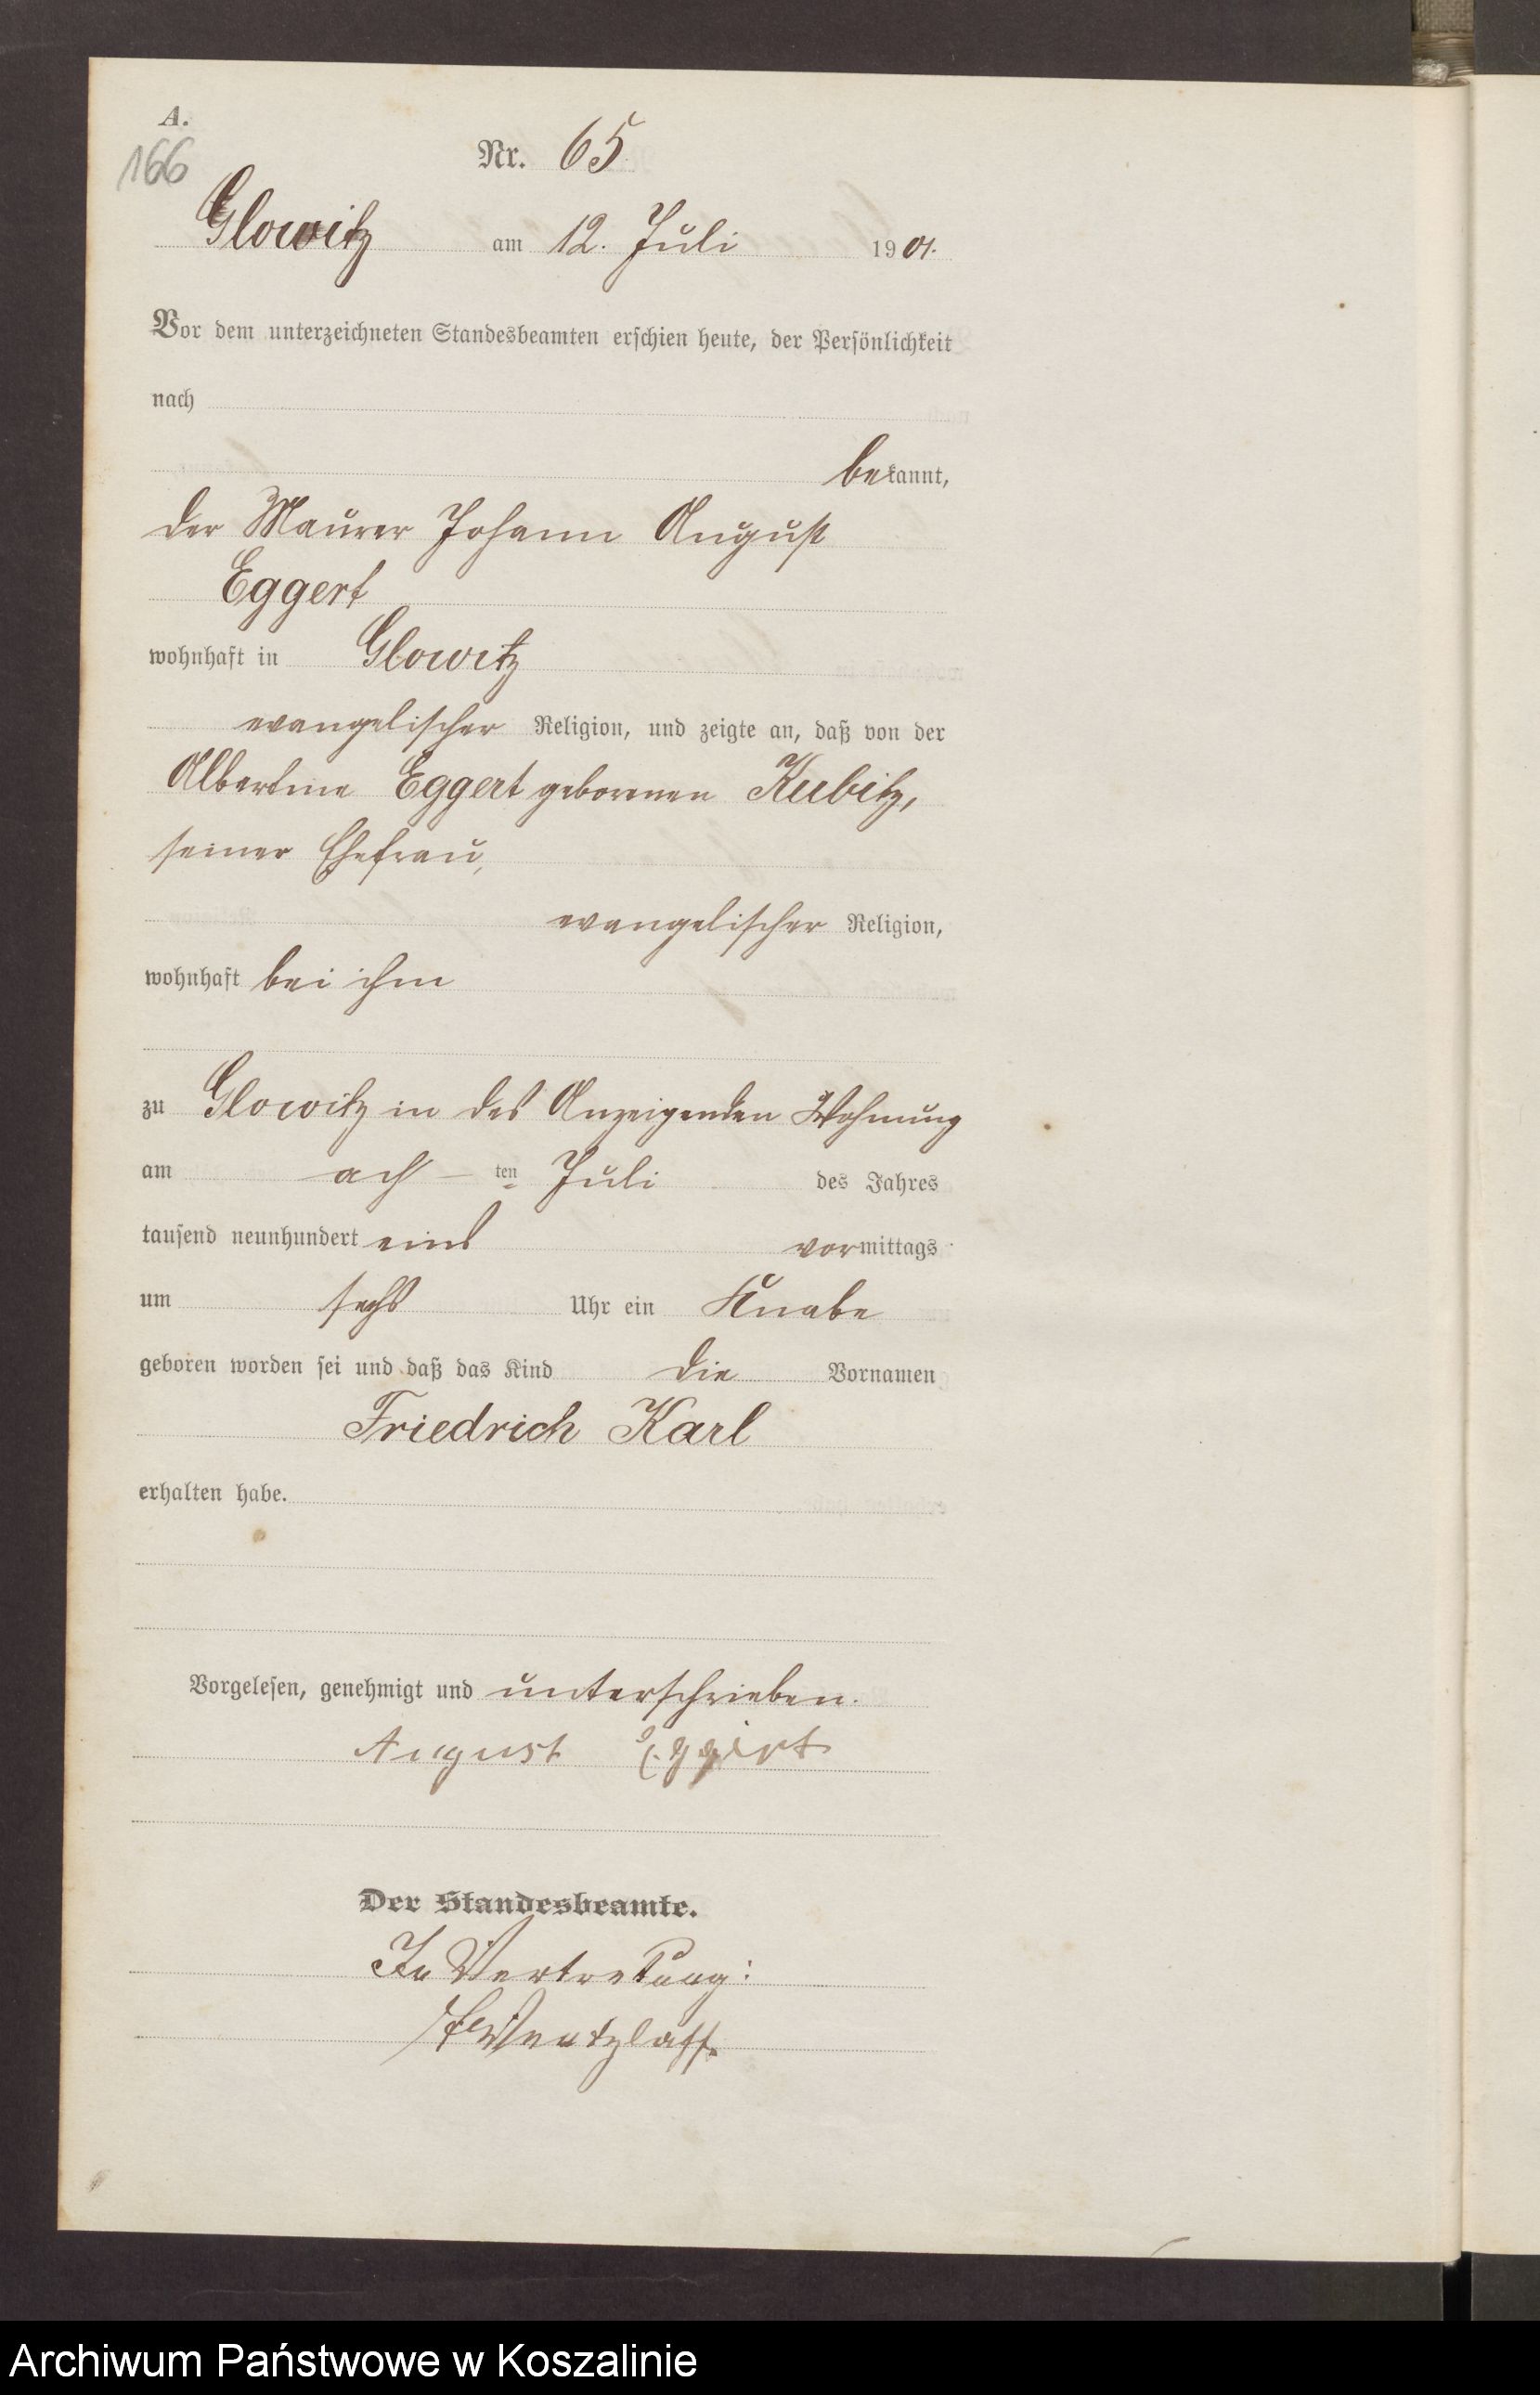 A.
166
Nr. 65
Glowitz am 12. Juli 1901.
Vor dem unterzeichneten Standesbeamten erschien heute, der Persönlichkeit
nach
bekannt,
der Maurer Johann August
Eggert
wohnhaft in Glowitz
evangelischer Religion, und zeigte an, daß von der
Albertine Eggert geborenen Kubitz,
seiner Ehefrau,
evangelischer Religion,
wohnhaft bei ihm
zu Glowitz in des Anzeigenden Wohnung
am ach - ten Juli des Jahres
tausend neunhundert eins vormittags
um sechs Uhr ein Knabe
geboren worden sei und daß das Kind die Vornamen
Friedrich Karl
erhalten habe.
Vorgelesen, genehmigt und unterschrieben.
August Eggert
Der Standesbeamte.
In Vertretung:
Wentzlaff.
Archiwum Państwowe w Koszalinie